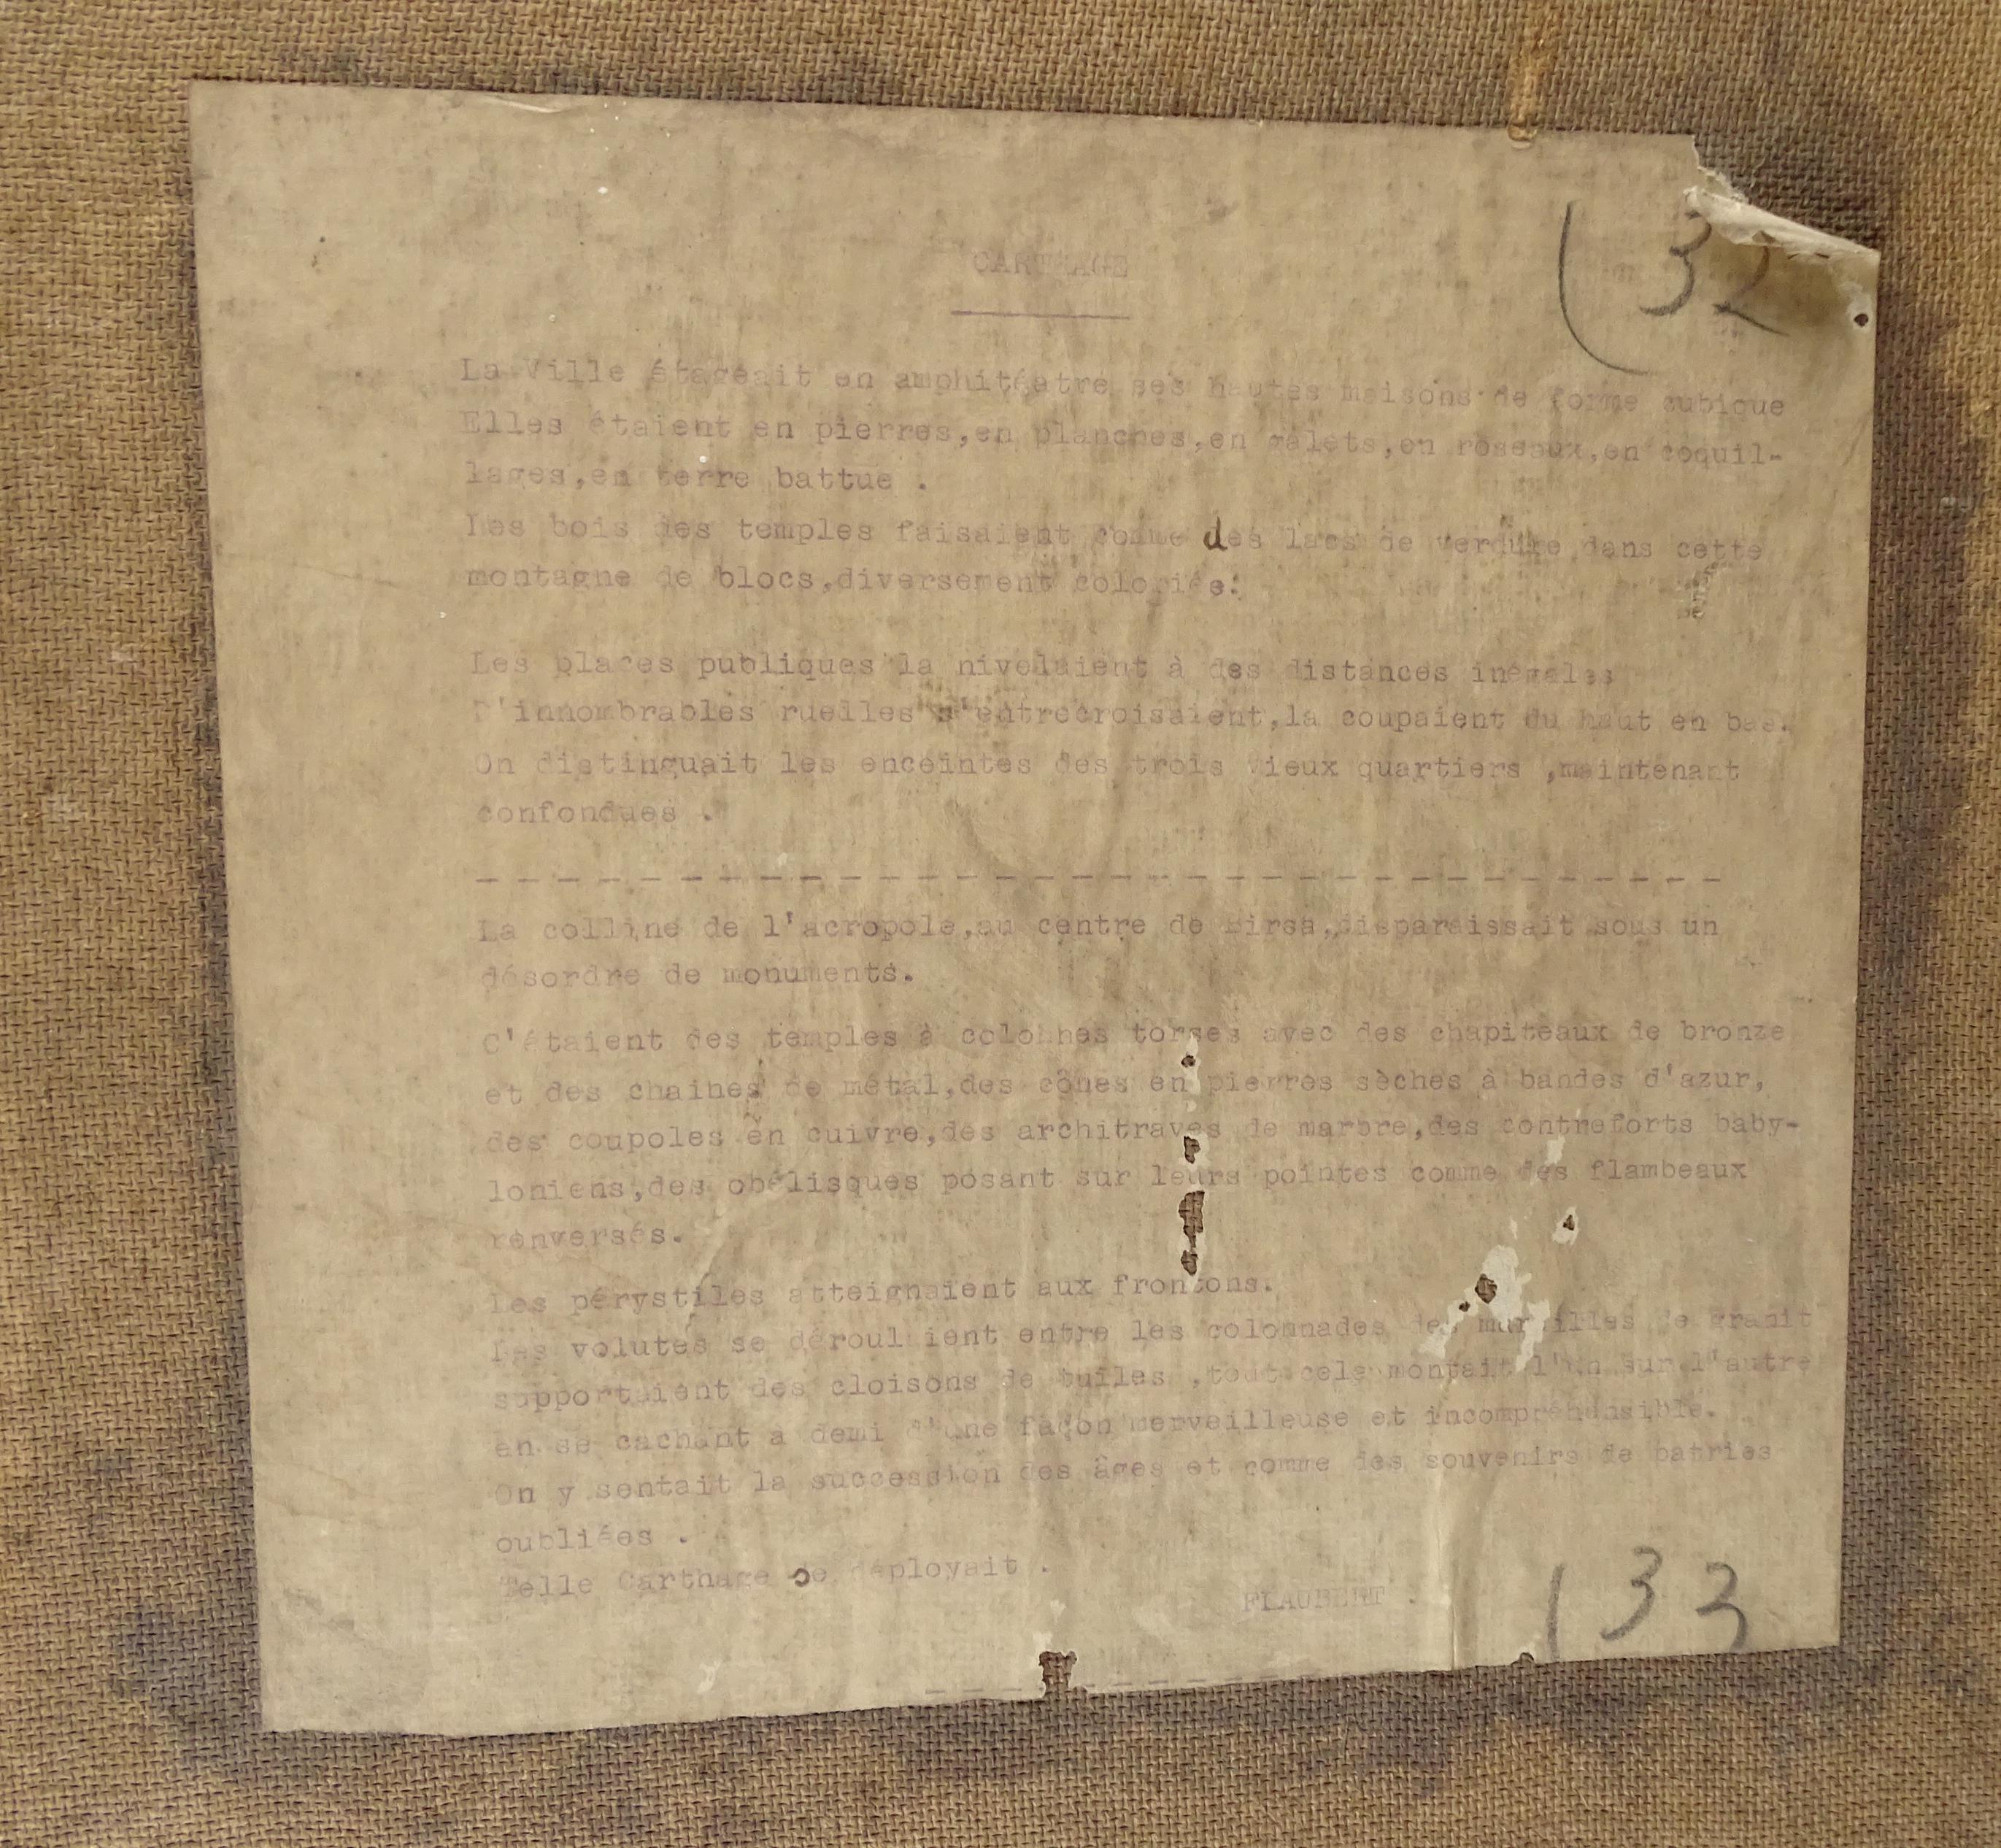 CARTHAGE
(32
La Ville étageait en amphitéatre ses hautes maisons de forme cubique
Elles étaient en pierres,en planches,en galets,en roseaux,en coquil-
lages,en terre battue .
Les bois des temples faisaient comme des lacs de verdure dans cette
montagne de blocs,diversement coloriés.
Les places publiques la nivelaient à des distances inégales
D'innombrables ruelles s'entrecroisaient,la coupaient du haut en bas.
On distinguait les enceintes des trois vieux quartiers ,maintenant
confondues .
La colline de l'acropole,au centre de Birsa,disparaissait sous un
désordre de monuments.
C'étaient des temples à colonnes torses avec des chapiteaux de bronze
et des chaines de métal,des cônes en pierres sèches à bandes d'azur,
des coupoles en cuivre,des architraves de marbre,des contreforts baby-
loniens,des obélisques posant sur leurs pointes comme des flambeaux
renversés.
Les pérystiles atteignaient aux frontons.
Les volutes se déroulaient entre les colonnades des murailles de granit
supportaient des cloisons de tuiles ,tout cela montait l'un sur l"autre
en se cachant a demi d'une façon merveilleuse et incompréhensible.
On y sentait la succession des âges et comme des souvenirs de patries
oubliées .
Telle Carthage se déployait .
FLAUBERT .
(33